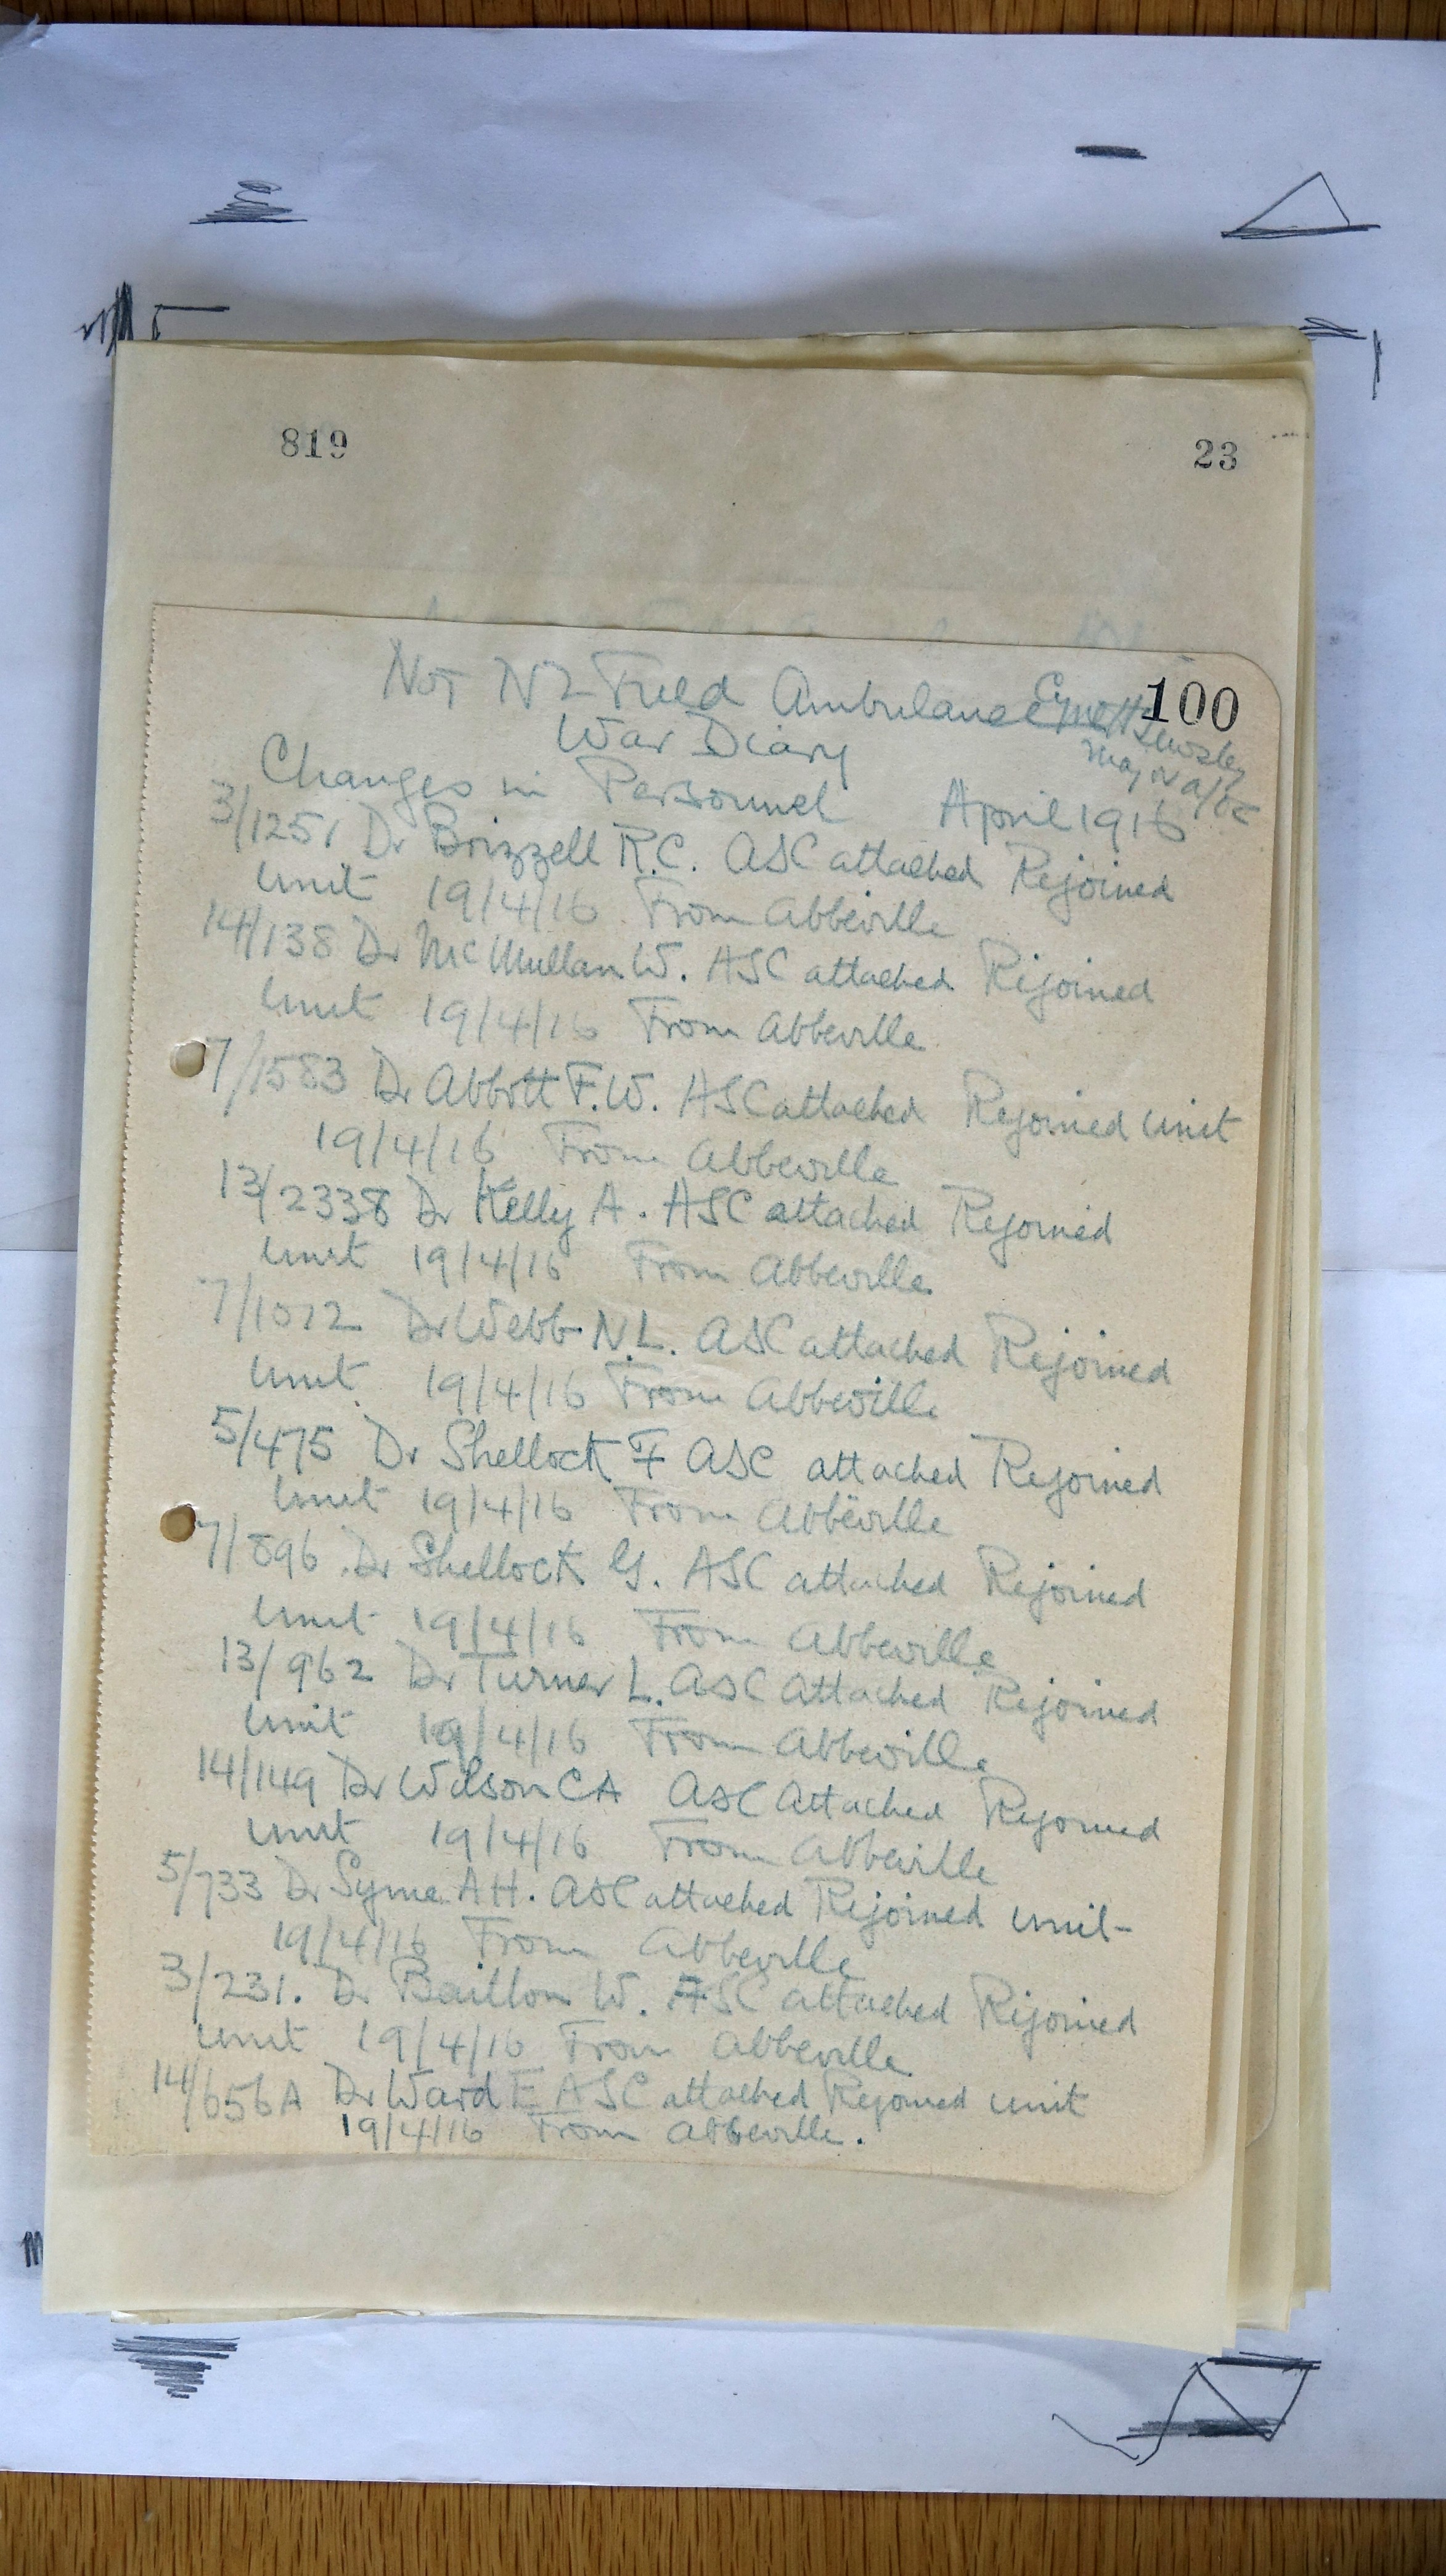 819 23
No 1 NZ Field Ambulance 100
War Diary Major a/OC
Changes in Personnel April 1916
3/1251 Dr Brizzell R.C. ASC attached Rejoined
unit 19/4/16 From Abbeville
14/138 Dr McMullan W. ASC attached Rejoined
unit 19/4/16 From Abbeville
7/1583 Dr Abbott F.W. ASC attached Rejoined unit
19/4/16 From Abbeville
13/2338 Dr Kelly A. ASC attached Rejoined
unit 19/4/16 From Abbeville
7/1072 Dr Webb N.L. ASC attached Rejoined
unit 19/4/16 From Abbeville
5/475 Dr Shellock F ASC attached Rejoined
unit 19/4/16 From Abbeville
7/896 Dr Shellock G. ASC attached Rejoined
unit 19/4/16 From Abbeville
13/962 Dr Turner L. ASC attached Rejoined
unit 19/4/16 From Abbeville
14/149 Dr Wilson CA ASC attached Rejoined
unit 19/4/16 From Abbeville
5/733 Dr Syme A H. ASC attached Rejoined unit
19/4/16 From Abbeville
3/231. Dr Baillon W. ASC attached Rejoined
unit 19/4/16 From Abbeville
14/656A Dr Ward E ASC attached Rejoined unit
19/4/16 From Abbeville.